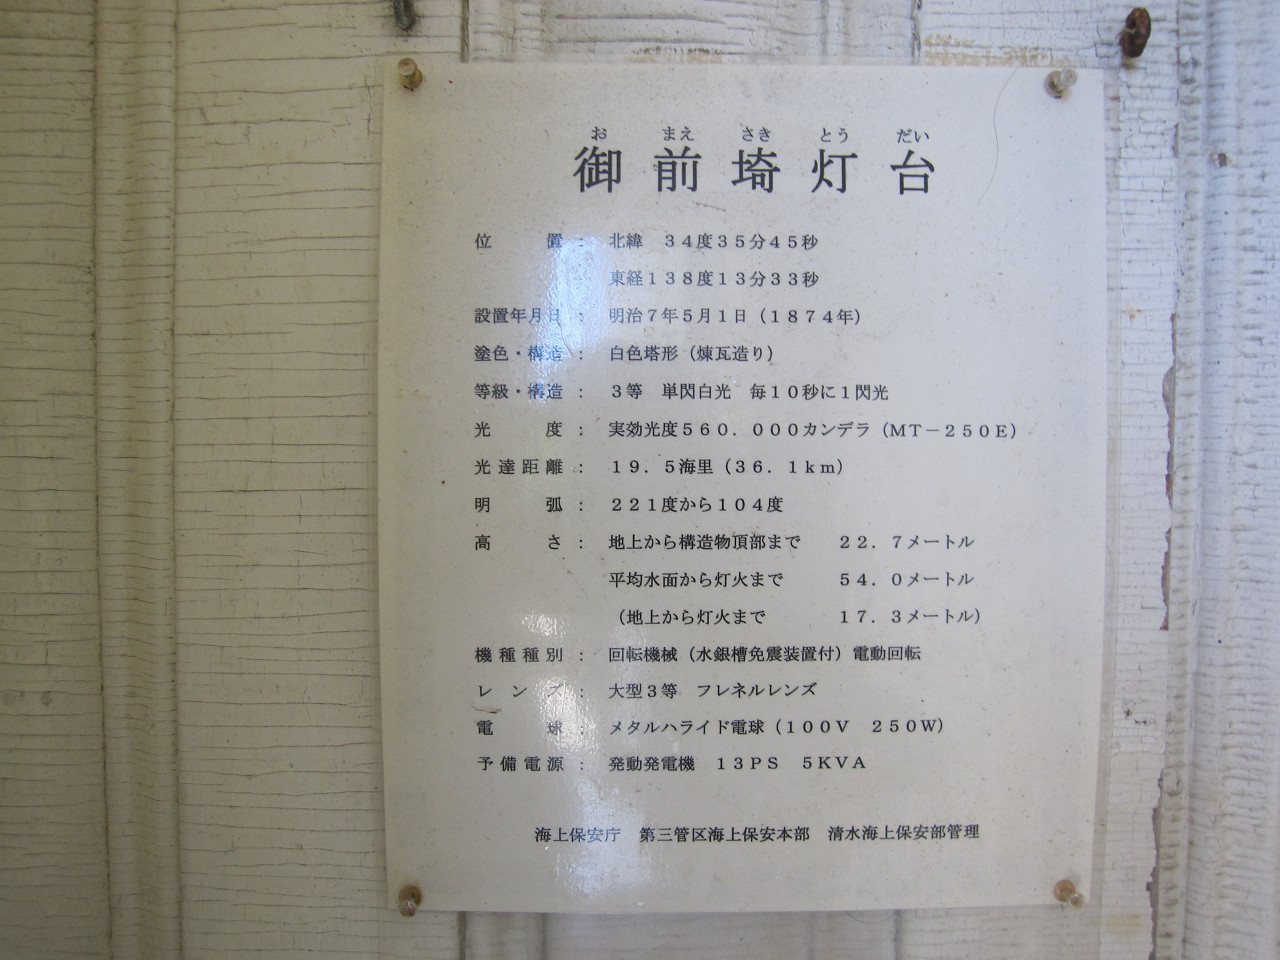 お まえ さき とう だい
御前埼灯台
位　　置： 北緯　３４度３５分４５秒
東経１３８度１３分３３秒
設置年月日： 明治７年５月１日（１８７４年）
塗色・構造： 白色塔形（煉瓦造り）
等級・構造： ３等　単閃白光　毎１０秒に１閃光
光　　度： 実効光度５６０．０００カンデラ（ＭＴ－２５０Ｅ）
光達距離： １９．５海里（３６．１ｋｍ）
明　　弧： ２２１度から１０４度
高　　さ： 地上から構造物頂部まで　２２．７メートル
平均水面から灯火まで　５４．０メートル
（地上から灯火まで　１７．３メートル）
機種種別： 回転機械（水銀槽免震装置付）電動回転
レンズ： 大型３等　フレネルレンズ
電　　球： メタルハライド電球（１００Ｖ　２５０Ｗ）
予備電源： 発動発電機　１３ＰＳ　５ＫＶＡ
海上保安庁　第三管区海上保安本部　清水海上保安部管理